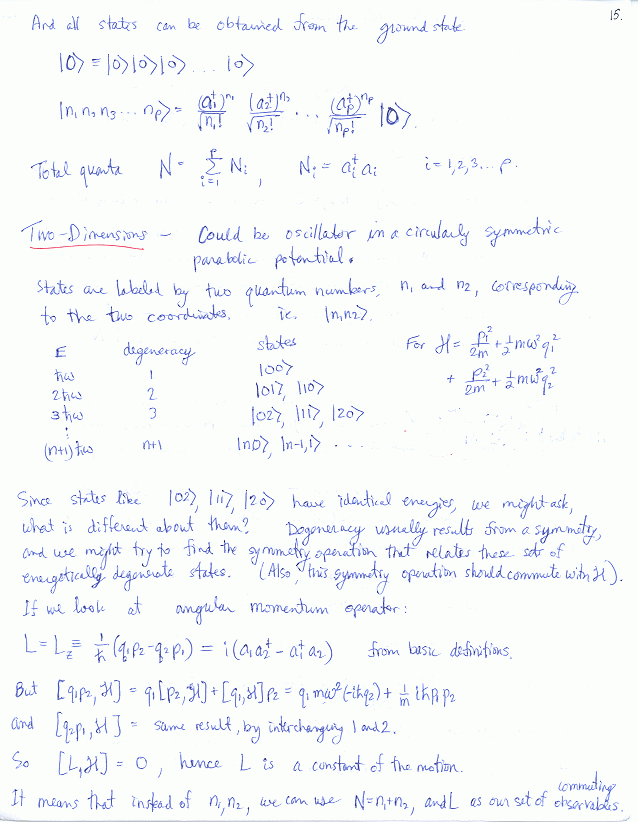 15.
And all states can be obtained from the ground state
|0⟩ ≡ |0⟩|0⟩|0⟩ ... |0⟩
|n₁ n₂ n₃ ... nₚ⟩ = (a₁†)ⁿ¹/√n₁! (a₂†)ⁿ²/√n₂! ... (aₚ†)ⁿᵖ/√nₚ! |0⟩.
Total quanta N = Σᵢ₌₁ᵖ Nᵢ , Nᵢ = aᵢ† aᵢ i = 1,2,3... p.
Two-Dimensions – Could be oscillator in a circularly symmetric
parabolic potential.
States are labeled by two quantum numbers, n₁ and n₂, corresponding
to the two coordinates. ie. |n₁n₂⟩.
E degeneracy states For H = p₁²/2m + ½mω²q₁²
ħω 1 |00⟩ + p₂²/2m + ½mω²q₂²
2ħω 2 |01⟩, |10⟩
3ħω 3 |02⟩, |11⟩, |20⟩
⋮
(n+1)ħω n+1 |n0⟩, |n-1,1⟩ ...
Since states like |02⟩, |11⟩, |20⟩ have identical energies, we might ask,
what is different about them? Degeneracy usually results from a symmetry,
and we might try to find the symmetry operation that relates these sets of
energetically degenerate states. (Also, this symmetry operation should commute with H).
If we look at angular momentum operator:
L = L_z ≡ 1/ħ (q₁p₂ - q₂p₁) = i(a₁a₂† - a₁†a₂) from basic definitions.
But [q₁p₂, H] = q₁[p₂, H] + [q₁, H]p₂ = q₁mω²(-iħq₂) + 1/m iħp₁p₂
and [q₂p₁, H] = same result, by interchanging 1 and 2.
So [L, H] = 0, hence L is a constant of the motion.
It means that instead of n₁, n₂, we can use N=n₁+n₂, and L as our set of commuting observables.